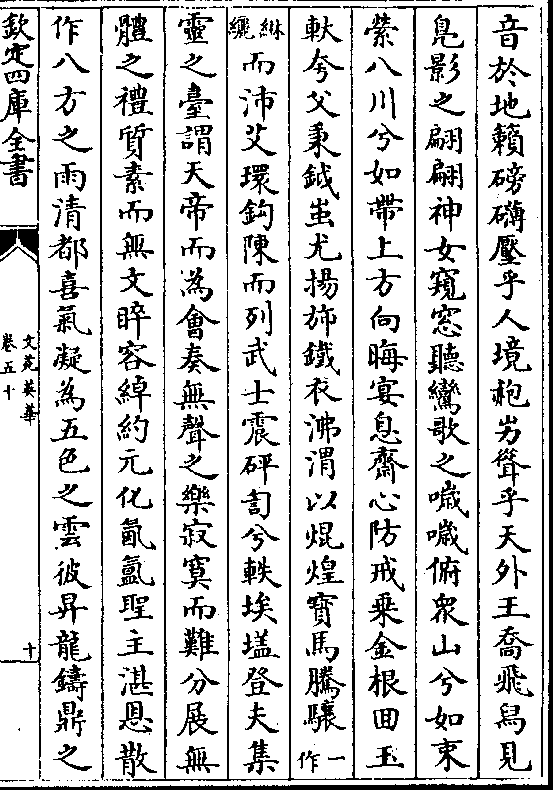 音於地籟磅礴壓乎人境聳乎天外王喬飛舄見
鳧影之翩翩神女窺窓聽鸞歌之噦噦俯衆山兮如束
縈八川兮如帶上方向晦宴息齋心防戒乗金根囬玉
軑夸父秉鉞蚩尤揚斾鐵衣沸渭以焜煌寳馬騰驤一作
綝纚而沛艾環鈎陳而列武士震砰訇兮軼埃壒登夫集
靈之臺謂天帝而為會奏無聲之樂寂寞而難分展無
體之禮質素而無文睟容綽約元化氤氲聖主湛恩散
作八方之雨清都喜氣凝為五色之雲彼昇龍鑄鼎之
欽定四庫全書
文苑英華
卷五十
十